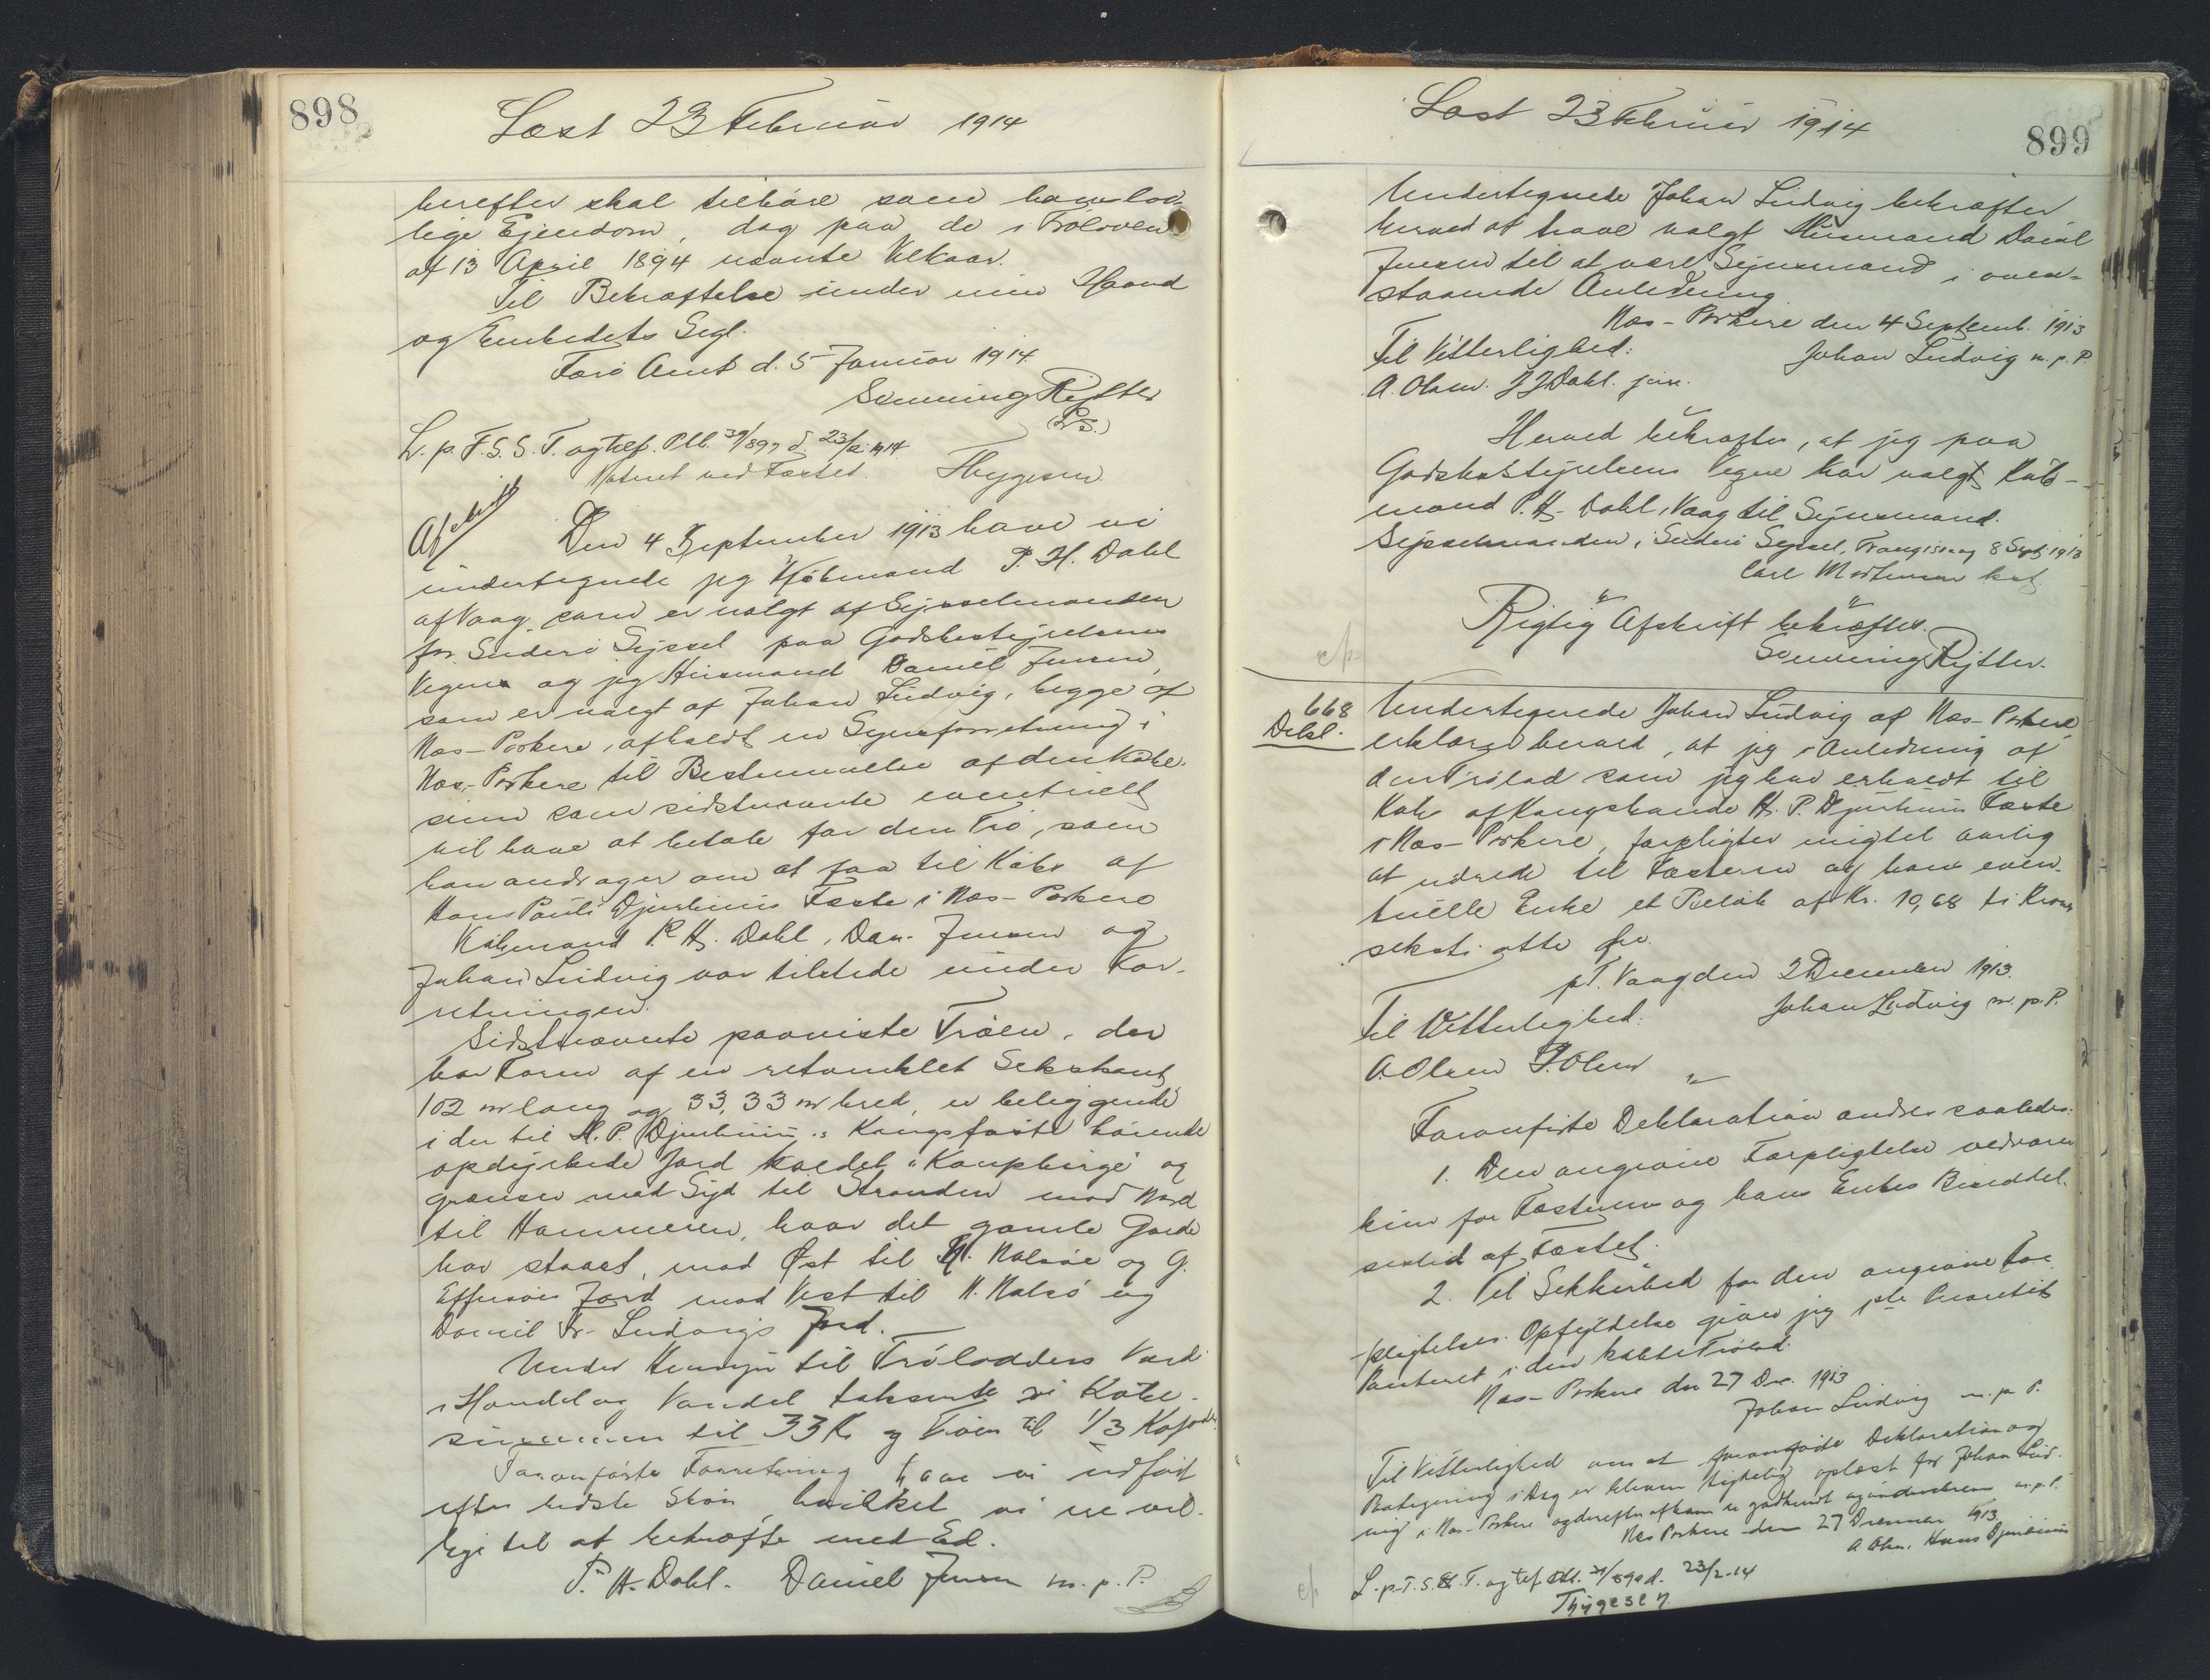 898
Læst 23 Februar 1914
herefter skal tilhøre som hans lov-
lige Ejendom, dog paa de i Trøloven
af 13 April 1894 nævnte Vilkaar.
Til Bekræftelse under min Haand
og Embedets Segl.
Færø Amt d. 5 Januar 1914.
Svenning Rytter
(L.S.)
L. p. F. S. S. T. og tilf. Ptb. 39/897 d. 23/2 1914
Noteret ved Fæstet. Thygesen
Afskrift
Den 4 September 1913 have vi
undertegnede jeg Købmand P. H. Dahl
af Vaag som er valgt af Sysselmanden
for Suderø Syssel paa Godsbestyrelsens
Vegne og jeg Husmand Daniel Jensen,
som er valgt af Johan Ludvig, begge af
Næs-Porkere, afholdt en Synsforretning i
Næs-Porkere til Bestemmelse af den Købe-
sum som sidstnævnte eventuelt
vil have at betale for den Trø, som
han andrager om at faa til Købs af
Hans Pauli Djurhuus Fæste i Næs-Porkere
Købmand P. H. Dahl, Dan. Jensen og
Johan Ludvig var tilstede under For-
retningen.
Sidstnævnte paaviste Trøen, der
har Form af en retvinklet Sekskant,
102 m lang og 33,33 m bred, er beliggende
i den til H. P. Djurhuus's Kongsfæste hørende
opdyrkede Jord kaldet "Kanpbirge" og
grænser mod Syd til Stranden mod Nord
til Hammeren, hvor det gamle Gærde
har staaet, mod Øst til N. Nalsøe og G.
Effersøes Jord mod Vest til N. Nalsø og
Daniel Fr. Ludvigs Jord.
Under Hensyn til Trølodders Værdi
i Handel og Vandel taksente vi Købe-
summen til 33 Kr og Trøen til 1/3
Foranførte Forretning have vi udført
efter bedste Skøn, hvilket vi ere vil-
lige til at bekræfte med Ed.
P. H. Dahl. Daniel Jensen m. p. P.
Læst 23 Februar 1914
899
Undertegnede Johan Ludvig bekræfter
herved at have valgt Husmand Daniel
Jensen til at være Synsmand i oven-
staaende Anledning.
Næs-Porkere den 4 Septemb. 1913
Til Vitterlighed: Johan Ludvig m. p. P.
A. Olsen. J J Dahl. jun.
Herved bekræftes, at jeg paa
Godsbestyrelsens Vegne har valgt Køb-
mand P. H. Dahl, Vaag til Synsmand.
Sysselmanden i Suderø Syssel, Trangisvaag 8 Sept 1913
Carl Mortensen kst
Rigtig Afskrift bekræftes.
Svenning Rytter.
668
Dekl.
Undertegnede Johan Ludvig af Næs-Porkere
erklærer herved, at jeg i Anledning af
den Trølod som jeg har erholdt til
Købs af Kongsbonde H. P. Djurhuus Fæste
i Næs-Porkere, forpligter mig til aarlig
at udrede til Fæsteren og hans even-
tuelle Enke et Beløb af Kr. 10,68 ti Kroner
seksti otte Øre.
p.T. Vaag den 2 December 1913.
Til Vitterlighed. Johan Ludvig m. p. P.
A. Olsen P. Olsen
Foranførte Deklaration ændres saaledes:
1. Den angivne Forpligtelse vedvarer
kun for Fæsteren og hans Enkes Besiddel-
sestid af Fæstet.
2. Til Sikkerhed for den angivne For-
pligtelses Opfyldelse giver jeg 1ste Prioritets
Panteret i den købte Trølod.
Næs-Porkere den 27 Dec. 1913
Johan Ludvig m. p. P.
Til Vitterlighed om at foranførte Deklaration og
Paategning i Dag er bleven tydelig oplæst for Johan Lud-
vig i Næs-Porkere og derefter af ham er godkendt og underskreven m.p.P.
Næs Porkere den 27 December 1913
A Olsen. Hans Djurhuus
L. p. F. S. S. T. og tilf. Ptb. 39/898 d. 23/2-14
Thygesen.